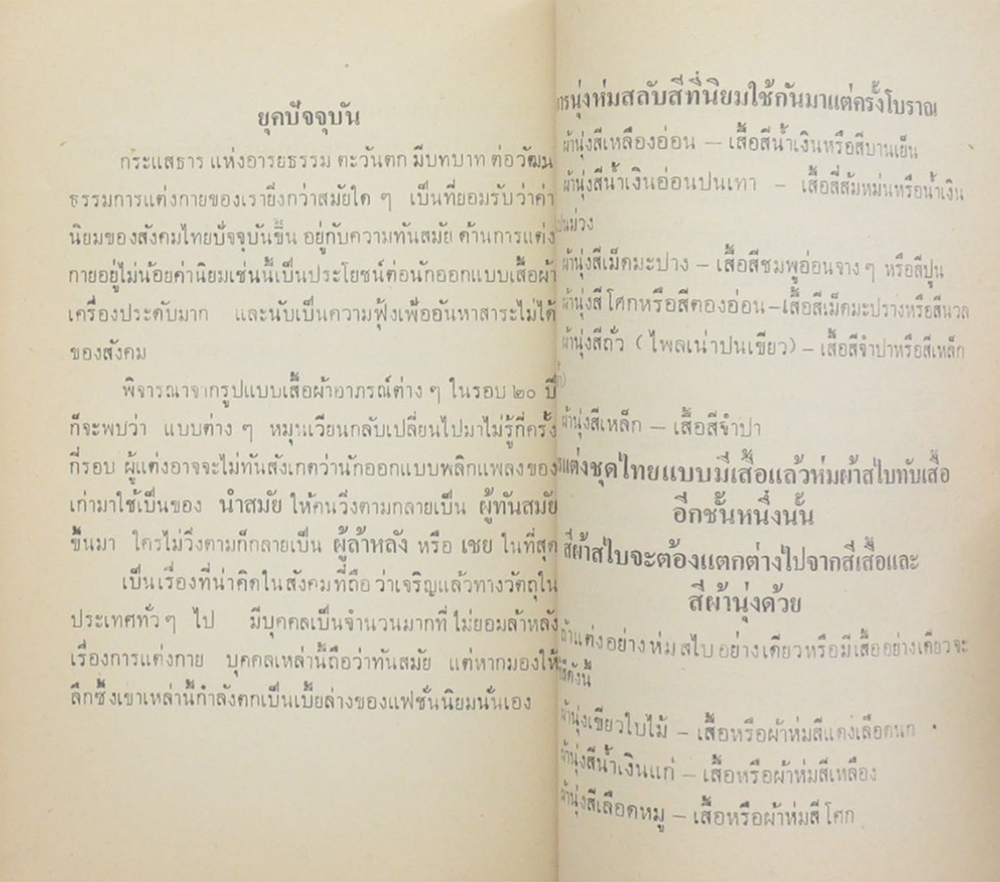 ยุคปัจจุบัน
กระแสธาร แห่งอารยธรรม ตะวันตก มีบทบาท ต่อวัฒน
ธรรมการแต่งกายของเรายิ่งกว่าสมัยใด ๆ เป็นที่ยอมรับว่าค่า
นิยมของสังคมไทยปัจจุบันขึ้น อยู่กับความทันสมัย ด้านการแต่ง
กายอยู่ไม่น้อยค่านิยมเช่นนี้เป็นประโยชน์ต่อนักออกแบบเสื้อผ้า
เครื่องประดับมาก และนับเป็นความฟุ้งเฟ้ออันหาสาระไม่ได้
ของสังคม
พิจารณาจากรูปแบบเสื้อผ้าอาภรณ์ต่าง ๆ ในรอบ ๒๐ ปี
ก็จะพบว่า แบบต่าง ๆ หมุนเวียนกลับเปลี่ยนไปมาไม่รู้กี่ครั้ง
กี่รอบ ผู้แต่งอาจจะไม่ทันสังเกตว่านักออกแบบพลิกแพลงของ
เก่ามาใช้เป็นของ นำสมัย ให้คนวิ่งตามกลายเป็น ผู้ทันสมัย
ขึ้นมา ใครไม่วิ่งตามก็กลายเป็น ผู้ล้าหลัง หรือ เชย ในที่สุด
เป็นเรื่องที่น่าคิดในสังคมที่ถือว่าเจริญแล้วทางวัตถุใน
ประเทศทั่ว ๆ ไป มีบุคคลเป็นจำนวนมากที่ไม่ยอมล้าหลัง
เรื่องการแต่งกาย บุคคลเหล่านี้ถือว่าทันสมัย แต่หากมองให้
ลึกซึ้งเขาเหล่านี้กำลังตกเป็นเบี้ยล่างของแฟชั่นนิยมนั่นเอง
การนุ่งห่มสลับสีที่นิยมใช้กันมาแต่ครั้งโบราณ
ผ้านุ่งสีเหลืองอ่อน – เสื้อสีน้ำเงินหรือสีบานเย็น
ผ้านุ่งสีน้ำเงินอ่อนปนเทา – เสื้อสีส้มหม่นหรือน้ำเงิน
ปนม่วง
ผ้านุ่งสีเม็ดมะปาง – เสื้อสีชมพูอ่อนจาง ๆ หรือสีปูน
ผ้านุ่งสีโศกหรือสีตองอ่อน–เสื้อสีเม็ดมะปรางหรือสีนวล
ผ้านุ่งสีถั่ว (ไพลเน่าปนเขียว) – เสื้อสีจำปาหรือสีเหล็ก
ผ้านุ่งสีเหล็ก – เสื้อสีจำปา
การแต่งชุดไทยแบบมีเสื้อแล้วห่มผ้าสไบทับเสื้อ
อีกชั้นหนึ่งนั้น
สีผ้าสไบจะต้องแตกต่างไปจากสีเสื้อและ
สีผ้านุ่งด้วย
ถ้าแต่งอย่างห่มสไบอย่างเดียวหรือมีเสื้ออย่างเดียวจะ
ดังนี้
ผ้านุ่งเขียวใบไม้ – เสื้อหรือผ้าห่มสีแดงเลือดนก
ผ้านุ่งสีน้ำเงินแก่ – เสื้อหรือผ้าห่มสีเหลือง
ผ้านุ่งสีเลือดหมู – เสื้อหรือผ้าห่มสีโศก